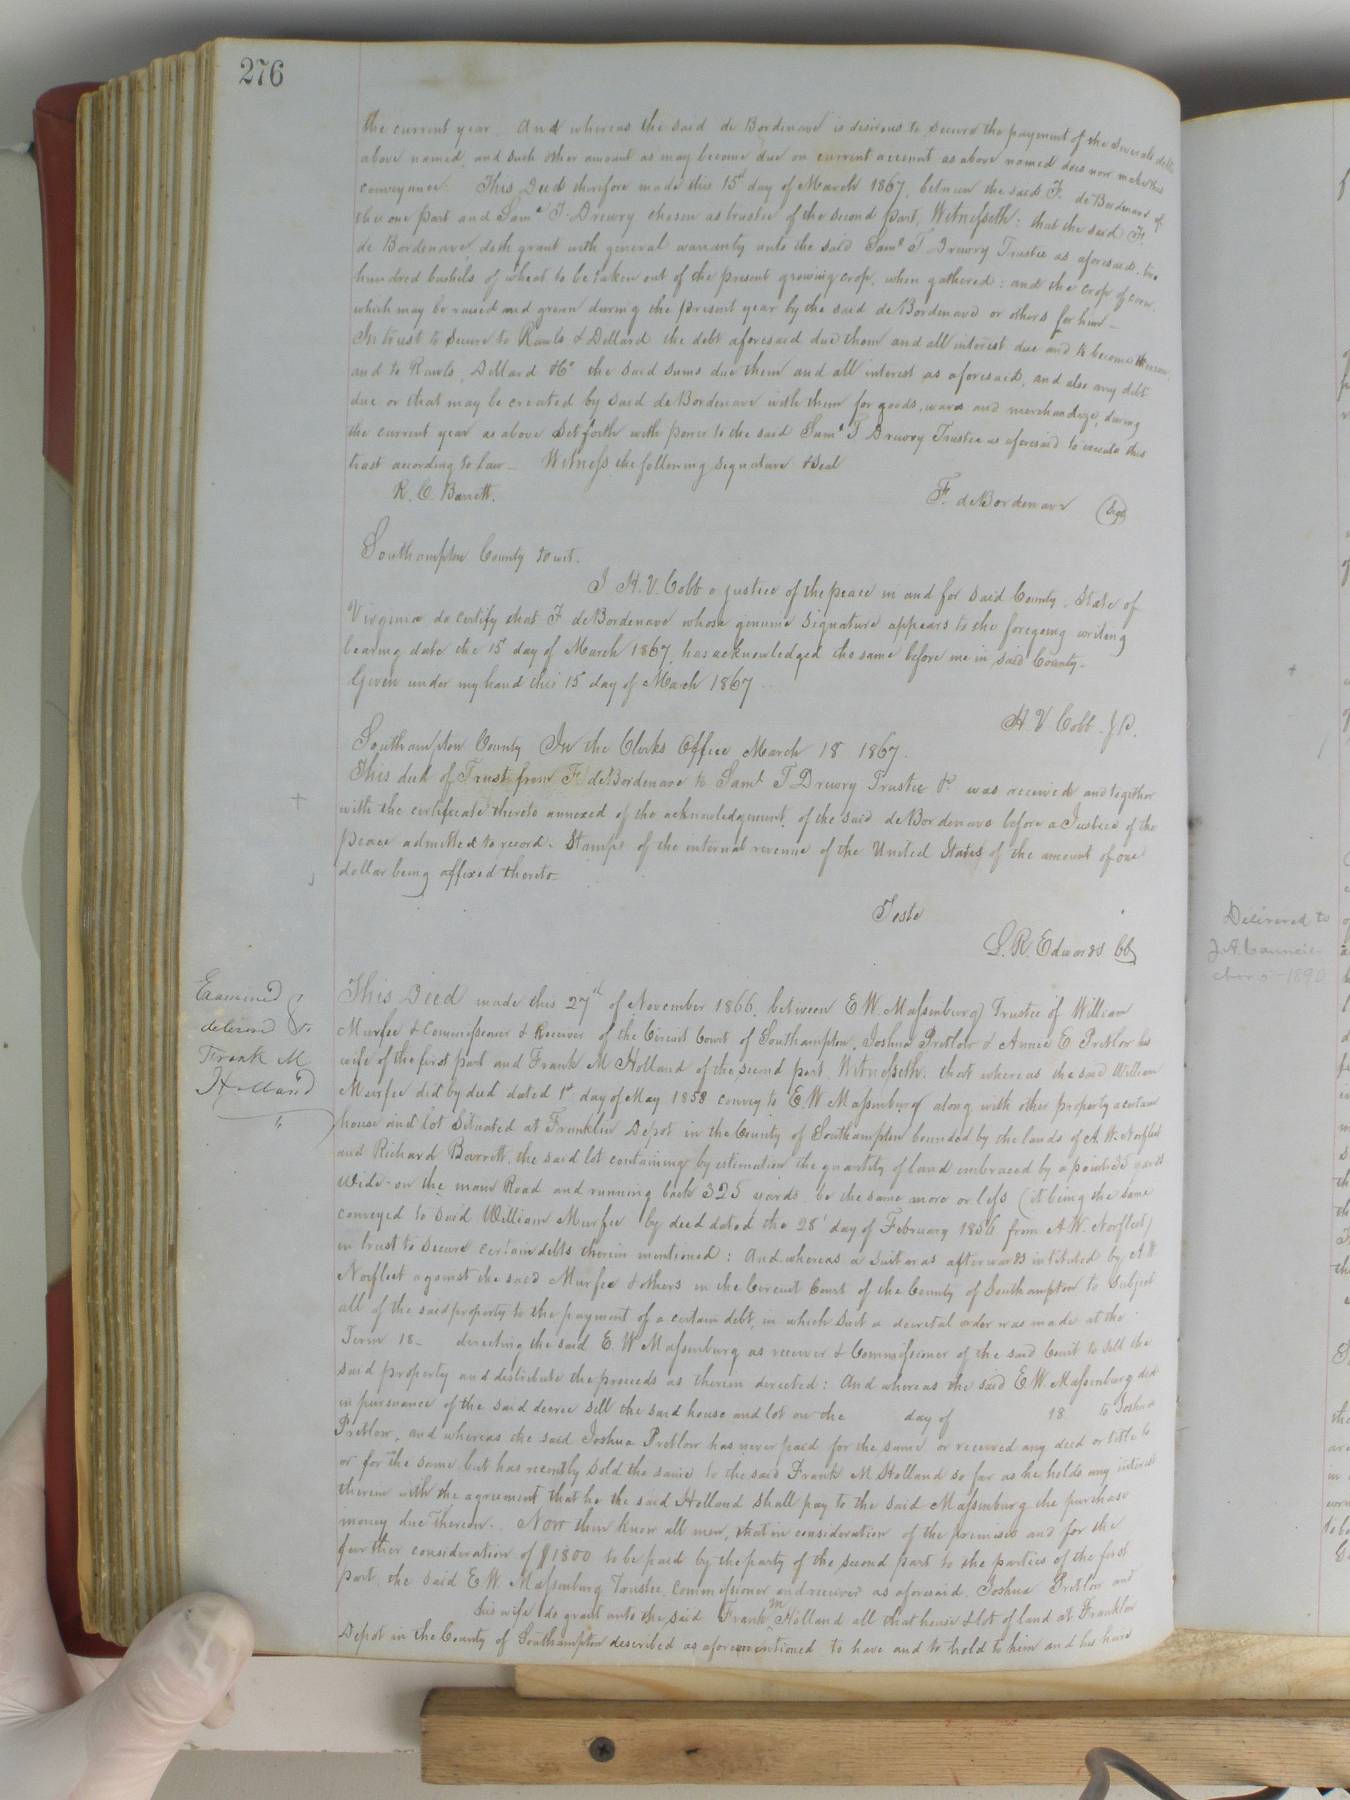 276
the current year. And whereas the said de Bordenave is desirous to secure the payment of the several debts
above named, and such other amount as may become due on current account as above named does now make this
conveyance. This Deed therefore made this 15th day of March 1867, between the said F. de Bordenave of
the one part and Saml T. Drewry chosen as trustee of the second part, Witnesseth: that the said F.
de Bordenave, doth grant with general warranty unto the said Saml T Drewry Trustee as aforesaid, two
hundred bushels of wheat to be taken out of the present growing crop, when gathered: and the crop of corn
which may be raised and grown during the present year by the said de Bordenave or others for him –
In trust to secure to Rawls & Dillard the debt aforesaid due them and all interest due and to become
and to Rawls, Dillard & Co the said sums due them and all interest as aforesaid, and also any debt
due or that may be created by said de Bordenave with them for goods, wares and merchandize, during
the current year as above set forth with power to the said Saml T. Drewry Trustee as aforesaid to execute this
trust according to law – Witness the following signature & seal
R. C. Barrett. F. de Bordenave (Seal)
Southampton County to wit.
I H. V. Cobb a justice of the peace in and for said County, State of
Virginia do certify that F de Bordenave whose genuine signature appears to the foregoing writing
bearing date the 15 day of March 1867, has acknowledged the same before me in said County –
Given under my hand this 15 day of March 1867
H. V Cobb. J.P.
Southampton County In the Clerks Office March 18 1867.
This deed of Trust from F de Bordenave to Saml T Drewry Trustee &c was received and together
with the certificate thereto annexed of the acknowledgement of the said de Bordenave before a Justice of the
peace admitted to record. Stamps of the internal revenue of the United States of the amount of one
dollar being affixed thereto –
Teste
L. R. Edwards Clk
Examined &
delivered to
Frank M
Holland
This Deed made this 27th of November 1866, between E W. Massenburg Trustee of William
Murfee & Commissioner & Receiver of the Circuit Court of Southampton, Joshua Pretlow & Annie E Pretlow his
wife of the first part and Frank M Holland of the second part, Witnesseth: that whereas the said William
Murfee did by deed dated 1st day of May 1858 convey to E W Massenburg along with other property a certain
house and lot situated at Franklin Depot in the County of Southampton bounded by the lands of A. W. Norfleet
and Richard Barrett, the said lot containing by estimation the quantity of land embraced by a yards
wide on the main Road and running back 325 yards be the same more or less (it being the same
conveyed to said William Murfee by deed dated the 28' day of February 1856 from A. W. Norfleet)
in trust to secure certain debts therein mentioned: And whereas a suit was afterwards instituted by A. W.
Norfleet against the said Murfee & others in the Circuit Court of the County of Southampton to subject
all of the said property to the payment of a certain debt, in which suit a decretal order was made at the
Term 18– directing the said E. W Massenburg as receiver & Commissioner of the said Court to sell the
said property and distribute the proceeds as therein directed: And whereas the said E W. Massenburg did
in pursuance of the said decree sell the said house and lot on the day of 18 to Joshua
Pretlow, and whereas the said Joshua Pretlow has never paid for the same or received any deed or title to
or for the same but has recently sold the same to the said Frank M Holland so far as he holds any interest
therein with the agreement that he the said Holland shall pay to the said Massenburg the purchase
money due thereon. Now then know all men, that in consideration of the premises and for the
further consideration of $1800 to be paid by the party of the second part to the parties of the first
part, the said E W. Massenburg Trustee, Commissioner and receiver as aforesaid, Joshua Pretlow and
his wife do grant unto the said Frank M Holland all that house & lot of land at Franklin
Depot in the County of Southampton described as aforementioned to have and to hold to him and his heirs
Delivered to
J. A. Council
1890